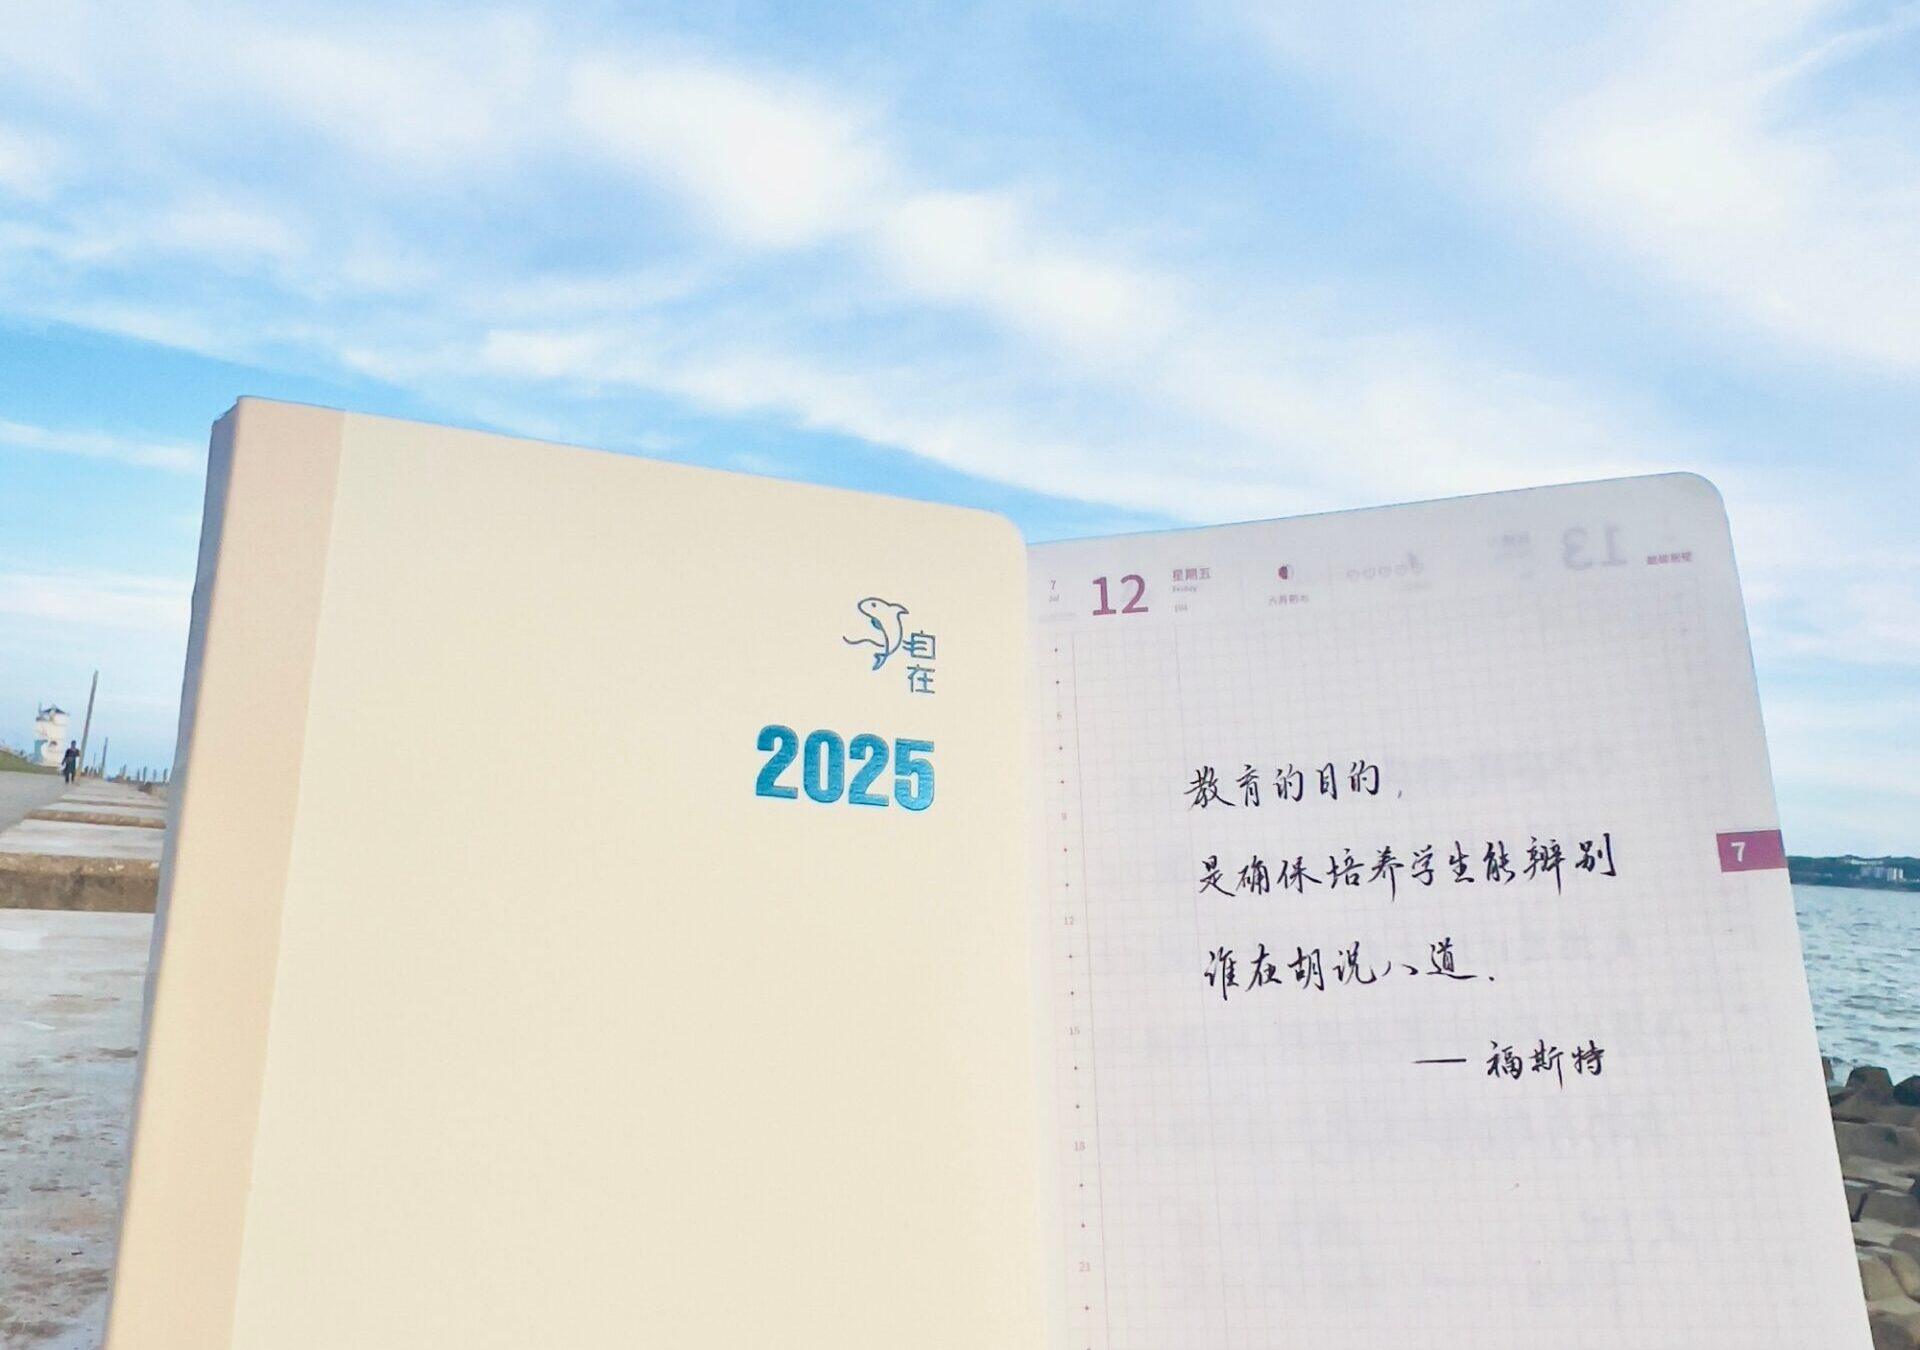 自
在
2025
7
Jul
12
星期五
Friday
194
六月初七
13
7
教育的目的,
是确保培养学生能辨别
谁在胡说八道.
— 福斯特
6
9
12
15
18
21